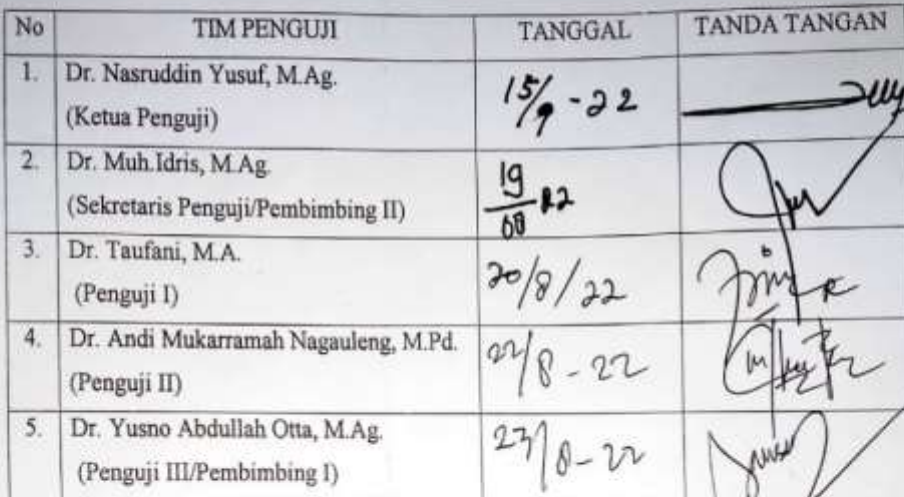 No TIM PENGUJI TANGGAL TANDA TANGAN
1. Dr. Nasruddin Yusuf, M.Ag.
(Ketua Penguji)
15/9 - 22
2. Dr. Muh.Idris, M.Ag.
(Sekretaris Penguji/Pembimbing II)
19/08 22
3. Dr. Taufani, M.A.
(Penguji I)
20/8/22
4. Dr. Andi Mukarramah Nagauleng, M.Pd.
(Penguji II)
22/8 - 22
5. Dr. Yusno Abdullah Otta, M.Ag.
(Penguji III/Pembimbing I)
23/8 - 22